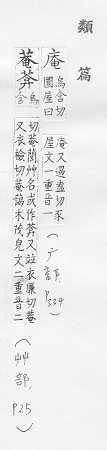 類
篇
庵 烏含切
圜屋曰
庵又遏盍切冢
屋文一重音一
(广部, P339)
菴葊 烏
含
切菴䕡艸名或作葊又竝衣廉切菴
又衣檢切菴藹木茂皃文二重音二
(艸部, P25)